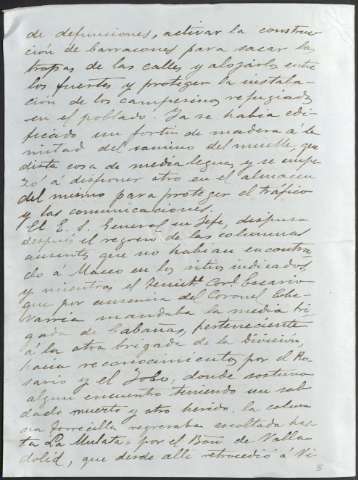 de defunciones, activar la construc
ción de barracones para sacar la
tropas de las calles y alojarlos entre
los fuertes y proteger la instala
ción de los campesinos refugiados
en el poblado. Ya se había edi
ficado un fortín de madera á la
mitad del camino del muelle, que
dista cosa de media legua, y se empe
zó á disponer otro en el almacen
del mismo para proteger el tráfico
y las comunicaciones.
El E. S. General en Jefe, dispuso
después el regreso de las columnas
que no habian encontra
do á Maceo en los sitios indicados
y mientras el Tenite. Corl.
que por ausencia del Coronel Eche
varria mandaba la media bri
gada de Cabañas, perteneciente
á la otra brigada de la Division,
hacia reconocimientos por el Ro
sario y el Jobo, donde sostuvo
algun encuentro teniendo un sol
dado muerto y otro herido, la colum
na Torrecilla regresaba escoltada has
ta La Mulata, por el Bon. de Valla
dolid, que desde alli retrocedió á Vi
5